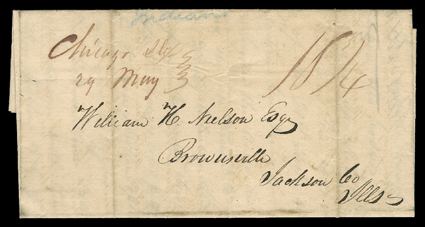 Indian
Chicago Ills
29 May
18 3/4
William H. Nelson Esqr
Brownsville
Jackson Co
Ills